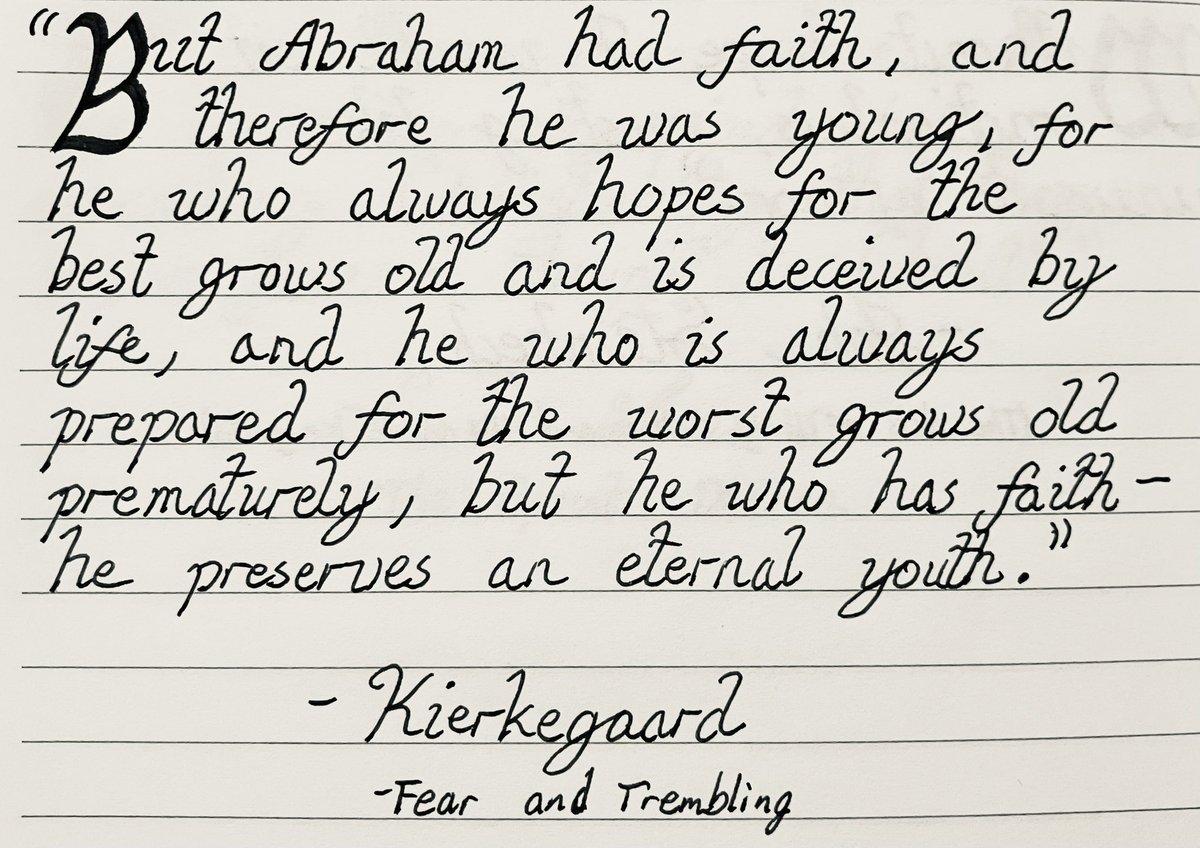 “But Abraham had faith, and
therefore he was young, for
he who always hopes for the
best grows old and is deceived by
life, and he who is always
prepared for the worst grows old
prematurely, but he who has faith –
he preserves an eternal youth.”
- Kierkegaard
-Fear and Trembling